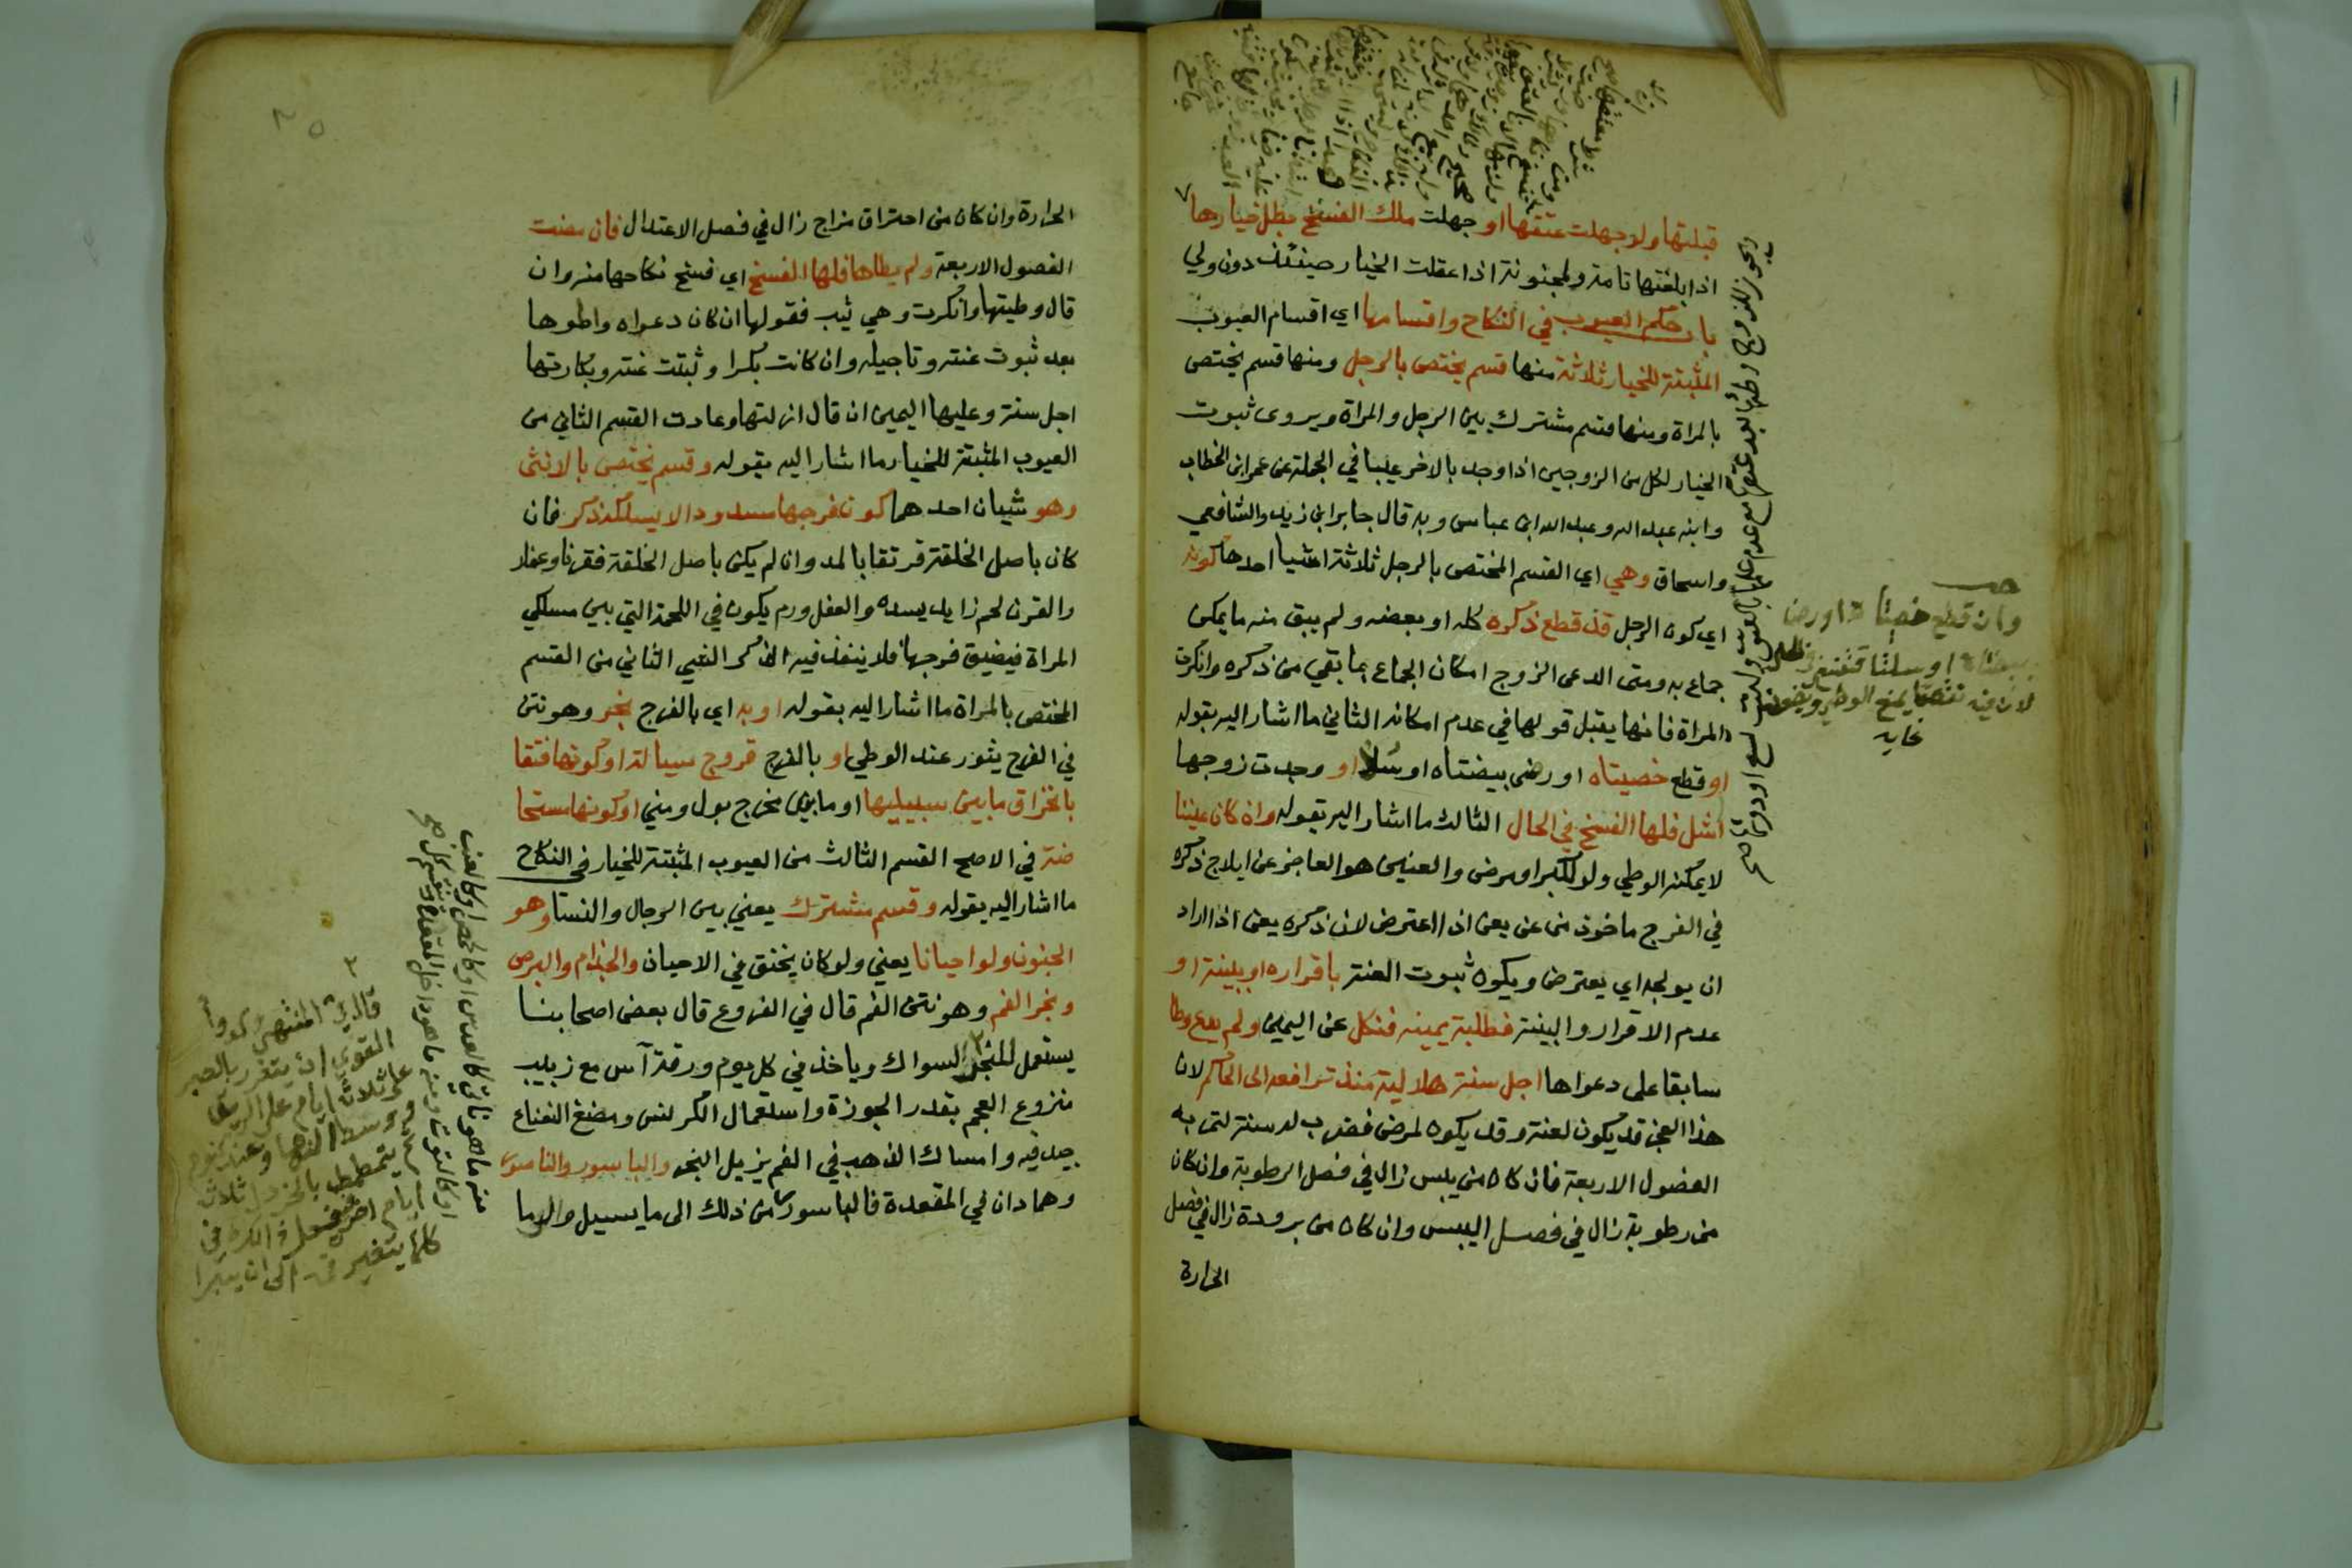 قبلتها ولو جهلت عتقها او جهلت ملك الفسخ بطل خيارها
اذا بلغتها تامة ولمجنونة اذا عقلت الخيار حينئذ دون ولي
باب حكم العيوب في النكاح واقسامها اي اقسام العيوب
المثبتة للخيار ثلاثة منها قسم يختص بالرجل ومنها قسم يختص
بالمراة ومنها قسم مشترك بين الرجل والمراة ويروى ثبوت
الخيار لكل من الزوجين اذا وجد بالاخر عيبا في الجملة عن عمر ابن الخطاب
وابنه عبد الله وعبد الله ابن عباس وبه قال جابر ابن زيد والشافعي
واسحاق وهي اي القسم المختص بالرجل ثلاثة اشيا احدها كونه
اي كون الرجل قد قطع ذكره كله او بعضه ولم يبق منه ما يمكن
جماع به ومتى ادعى الزوج امكان الجماع بما بقي من ذكره وانكرت
المراة فانها يقبل قولها في عدم امكانه الثاني ما اشار اليه بقوله
او قطع خصيتاه او رض بيضتاه او سلا او وجدت زوجها
اشل فلها الفسخ في الحال الثالث ما اشار اليه بقوله وان كان عنينا
لا يمكنه الوطي ولو لكبر او مرض والعنين هو العاجز عن ايلاج ذكره
في الفرج ماخوذ من عن يعن اذا اعترض لان ذكره يعن اذا اراد
ان يولجه اي يعترض ويكون ثبوت العنة باقراره او ببينة او
عدم الاقرار والبينة فطلبة يمينه فنكل عن اليمين ولم يدع وطا
سابقا على دعواها اجل سنة هلالية منذ ترافعه الى الحاكم لان
هذا العجز قد يكون لعنة وقد يكون لمرض فضرب له سنة لتمر به
الفصول الاربعة فان كان من يبس زال في فصل الرطوبة وان كان
من رطوبة زال في فصل اليبس وان كان من برودة زال في فصل
الحرارة
وان قطع خصيتاه او رض
بيضتاه او سلتا
لان فيه نقصا يمنع الوطي
غايه
الحرارة وان كان من احتراق مزاج زال في فصل الاعتدال فان مضت
الفصول الاربعة ولم يطاها فلها الفسخ اي فسخ نكاحها منه وان
قال وطيتها وانكرت وهي ثيب فقولها ان كان دعواه واطوها
بعد ثبوت عنته وتاجيله وان كانت بكرا وثبتت عنته وبكارتها
اجل سنة وعليها اليمين ان قال ازلتها وعادت القسم الثاني من
العيوب المثبتة للخيار ما اشار اليه بقوله وقسم يختص بالانثى
وهو شيان احدهما كون فرجها مسدودا لا يسلكه ذكر فان
كان باصل الخلقة فرتقا بالمد وان لم يكن باصل الخلقة فقرنا وعفل
والقرن لحم زايد يسده والعفل ورم يكون في اللحمة التي بين مسلكي
المراة فيضيق فرجها فلا ينفذ فيه الذكر الشي الثاني من القسم
المختص بالمراة ما اشار اليه بقوله او به اي بالفرج بخر وهو نتن
في الفرج يثور عند الوطي او بالفرج قروح سيالة او كونها فتقا
بانخراق ما بين سبيليها او ما بين مخرج بول ومني او كونها مستحا
ضة في الاصح القسم الثالث من العيوب المثبتة للخيار في النكاح
ما اشار اليه بقوله وقسم مشترك يعني بين الرجال والنسا وهو
الجنون ولو احيانا يعني ولو كان يخنق في الاحيان والجذام والبرص
وبخر الفم وهو نتن الفم قال في الفروع قال بعض اصحابنا
يستعمل للبخر السواك وياخذ في كل يوم ورقة آس مع زبيب
منزوع العجم بقدر الجوزة واستعمال الكرفس ومضغ النعناع
جيد فيه وامساك الذهب في الفم يزيل البخر والباسور والناسور
وهما دان في المقعدة فالباسور من ذلك الى ما يسيل
منه ما هو ناتي كالعدس او كالحمص او كالعنب
او كالتوت ومنه ما هو داخل المقعدة
قال في المنتهى
القوي ان يتغرر بالصبر
ثلاثة ايام على الريق
ووسط النهار وعند النوم
يتمضمض بالخردل ثلاثة
ايام اخر يفعل ذلك في
كلما يتغير فمه الى ان يبرا